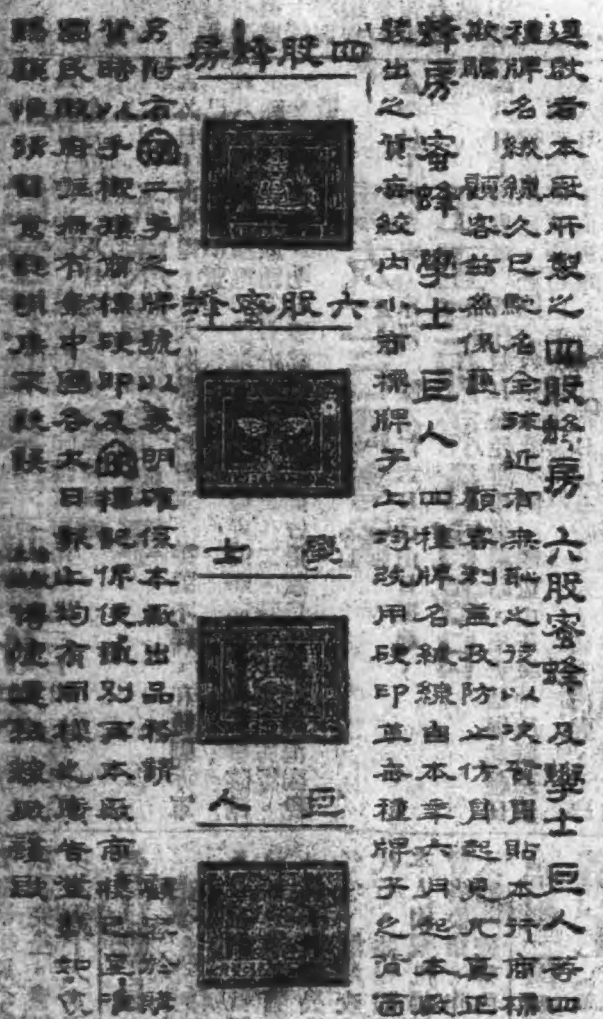 逕啟者本廠所製之四股蜂房六股蜜蜂及學士巨人等四
種牌名絨綫久已馳名全球近有無恥之徒以次貨冒貼本行商標
欺騙 顧客茲為保護 顧客利益及防止仿冒起見凡真正
蜂房 蜜蜂 學士 巨人 四種牌名絨線自本年六月起本廠
發出之貨每絞內小商標牌子上均改用硬印並每種牌子之背面
四股蜂房
六股蜜蜂
學士
巨人
名附有二字之牌號以表明確係本廠出品務請 顧客於購
貨時以手撳摸商標硬印及標記俾便識別再本廠商標已呈准
國民政府註冊有案中國各大日報上均有同樣之廣告登載如蒙
賜顧惟請留意認明庶不致誤 博德運絨線廠謹啟